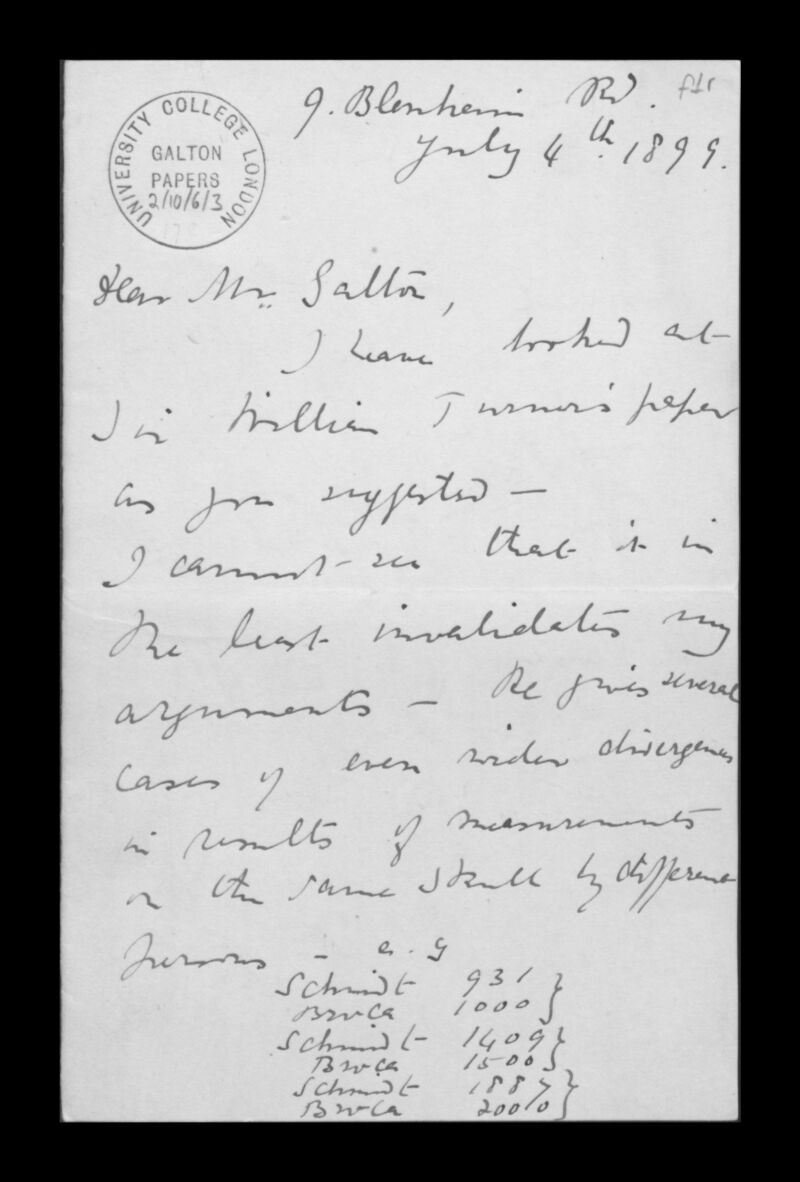 9. Blenheim Rd. f1r
July 4th. 1899.
UNIVERSITY COLLEGE LONDON
GALTON
PAPERS
2/10/6/3
Dear Mr. Galton,
I have looked at
Sir William Turner's paper
as you suggested —
I cannot see that it in
the least invalidates my
arguments — He gives several
cases of even wider divergences
in results of measurements
on the same skull by different
persons – e.g
Schmidt 931 }
Broca 1000 }
Schmidt 1409 }
Broca 1500 }
Schmidt 1887 }
Broca 2000 }